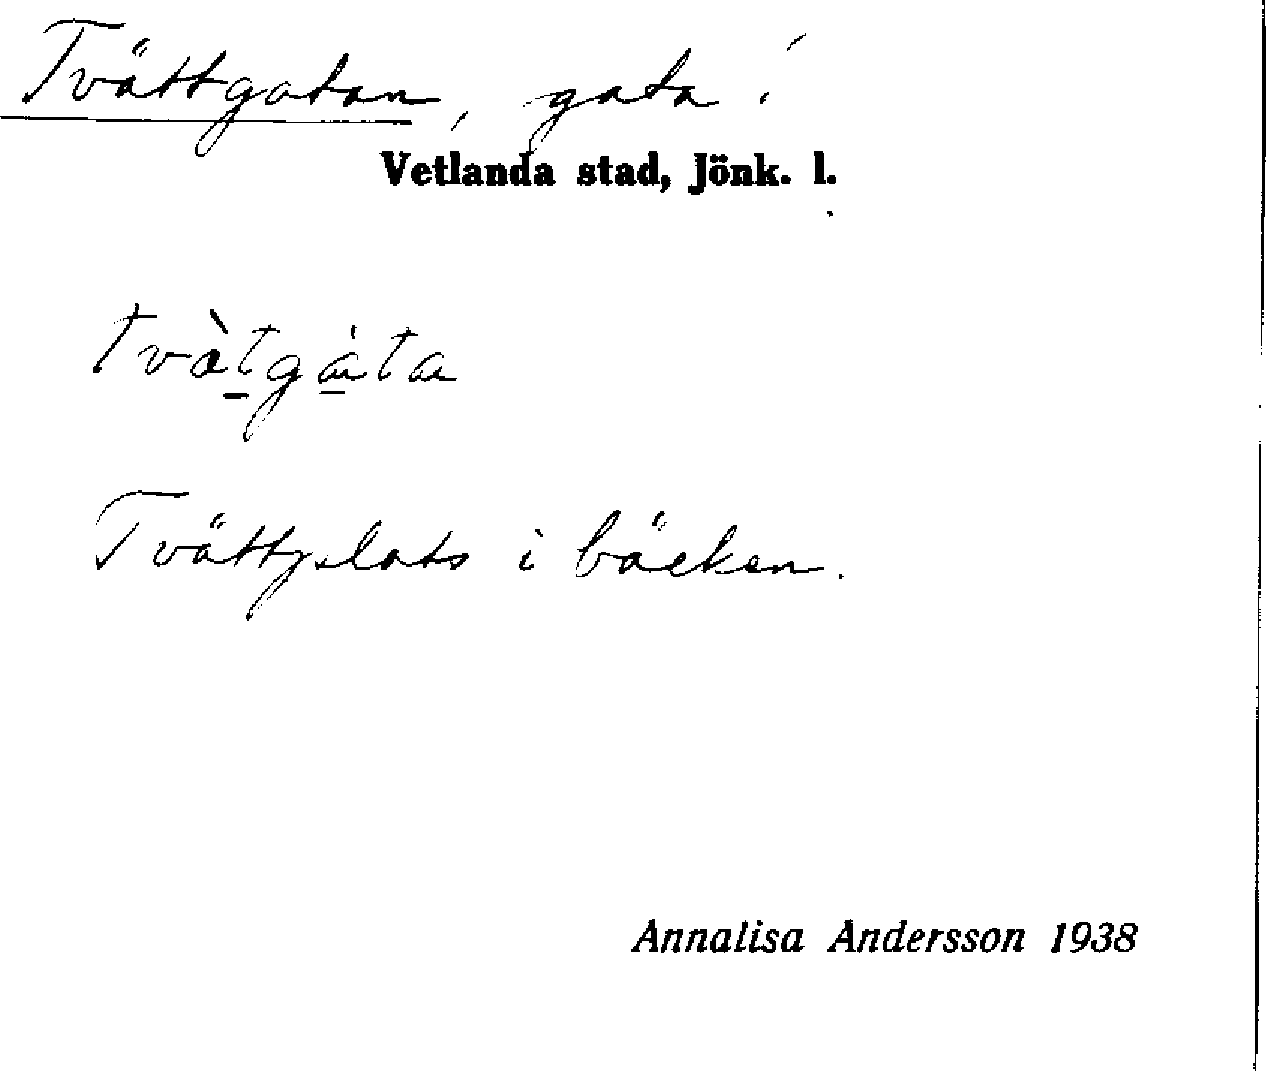 Tvättgatan, gata i
Vetlanda stad, Jönk. l.
tvàtgáta
Tvättplats i bäcken.
Annalisa Andersson 1938